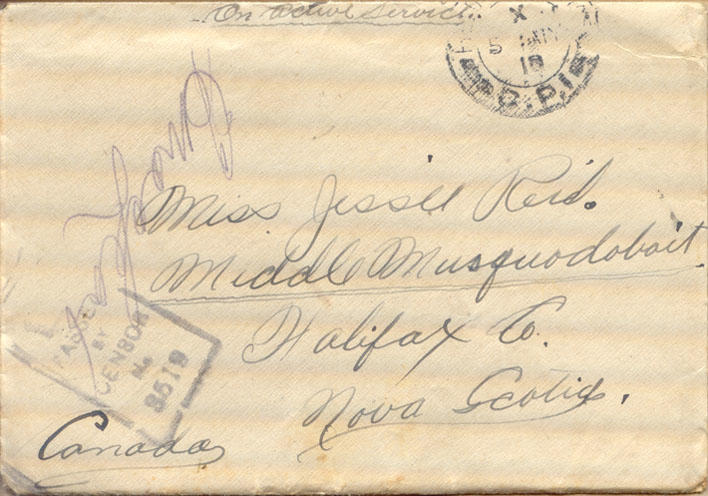 On Active Service
X
5
18
Miss Jessie Reid.
Middle Musquodoboit.
Halifax Co.
Nova Scotia.
Canada
PASSED
BY
CENSOR
No
3519